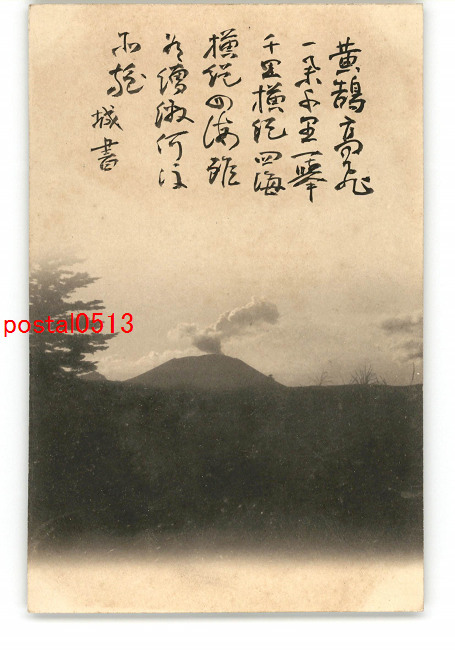 黄鵠高飛
一举千里一举
千里横絶四海
横絶四海雖
有繒繳何
所施
城書
postal0513